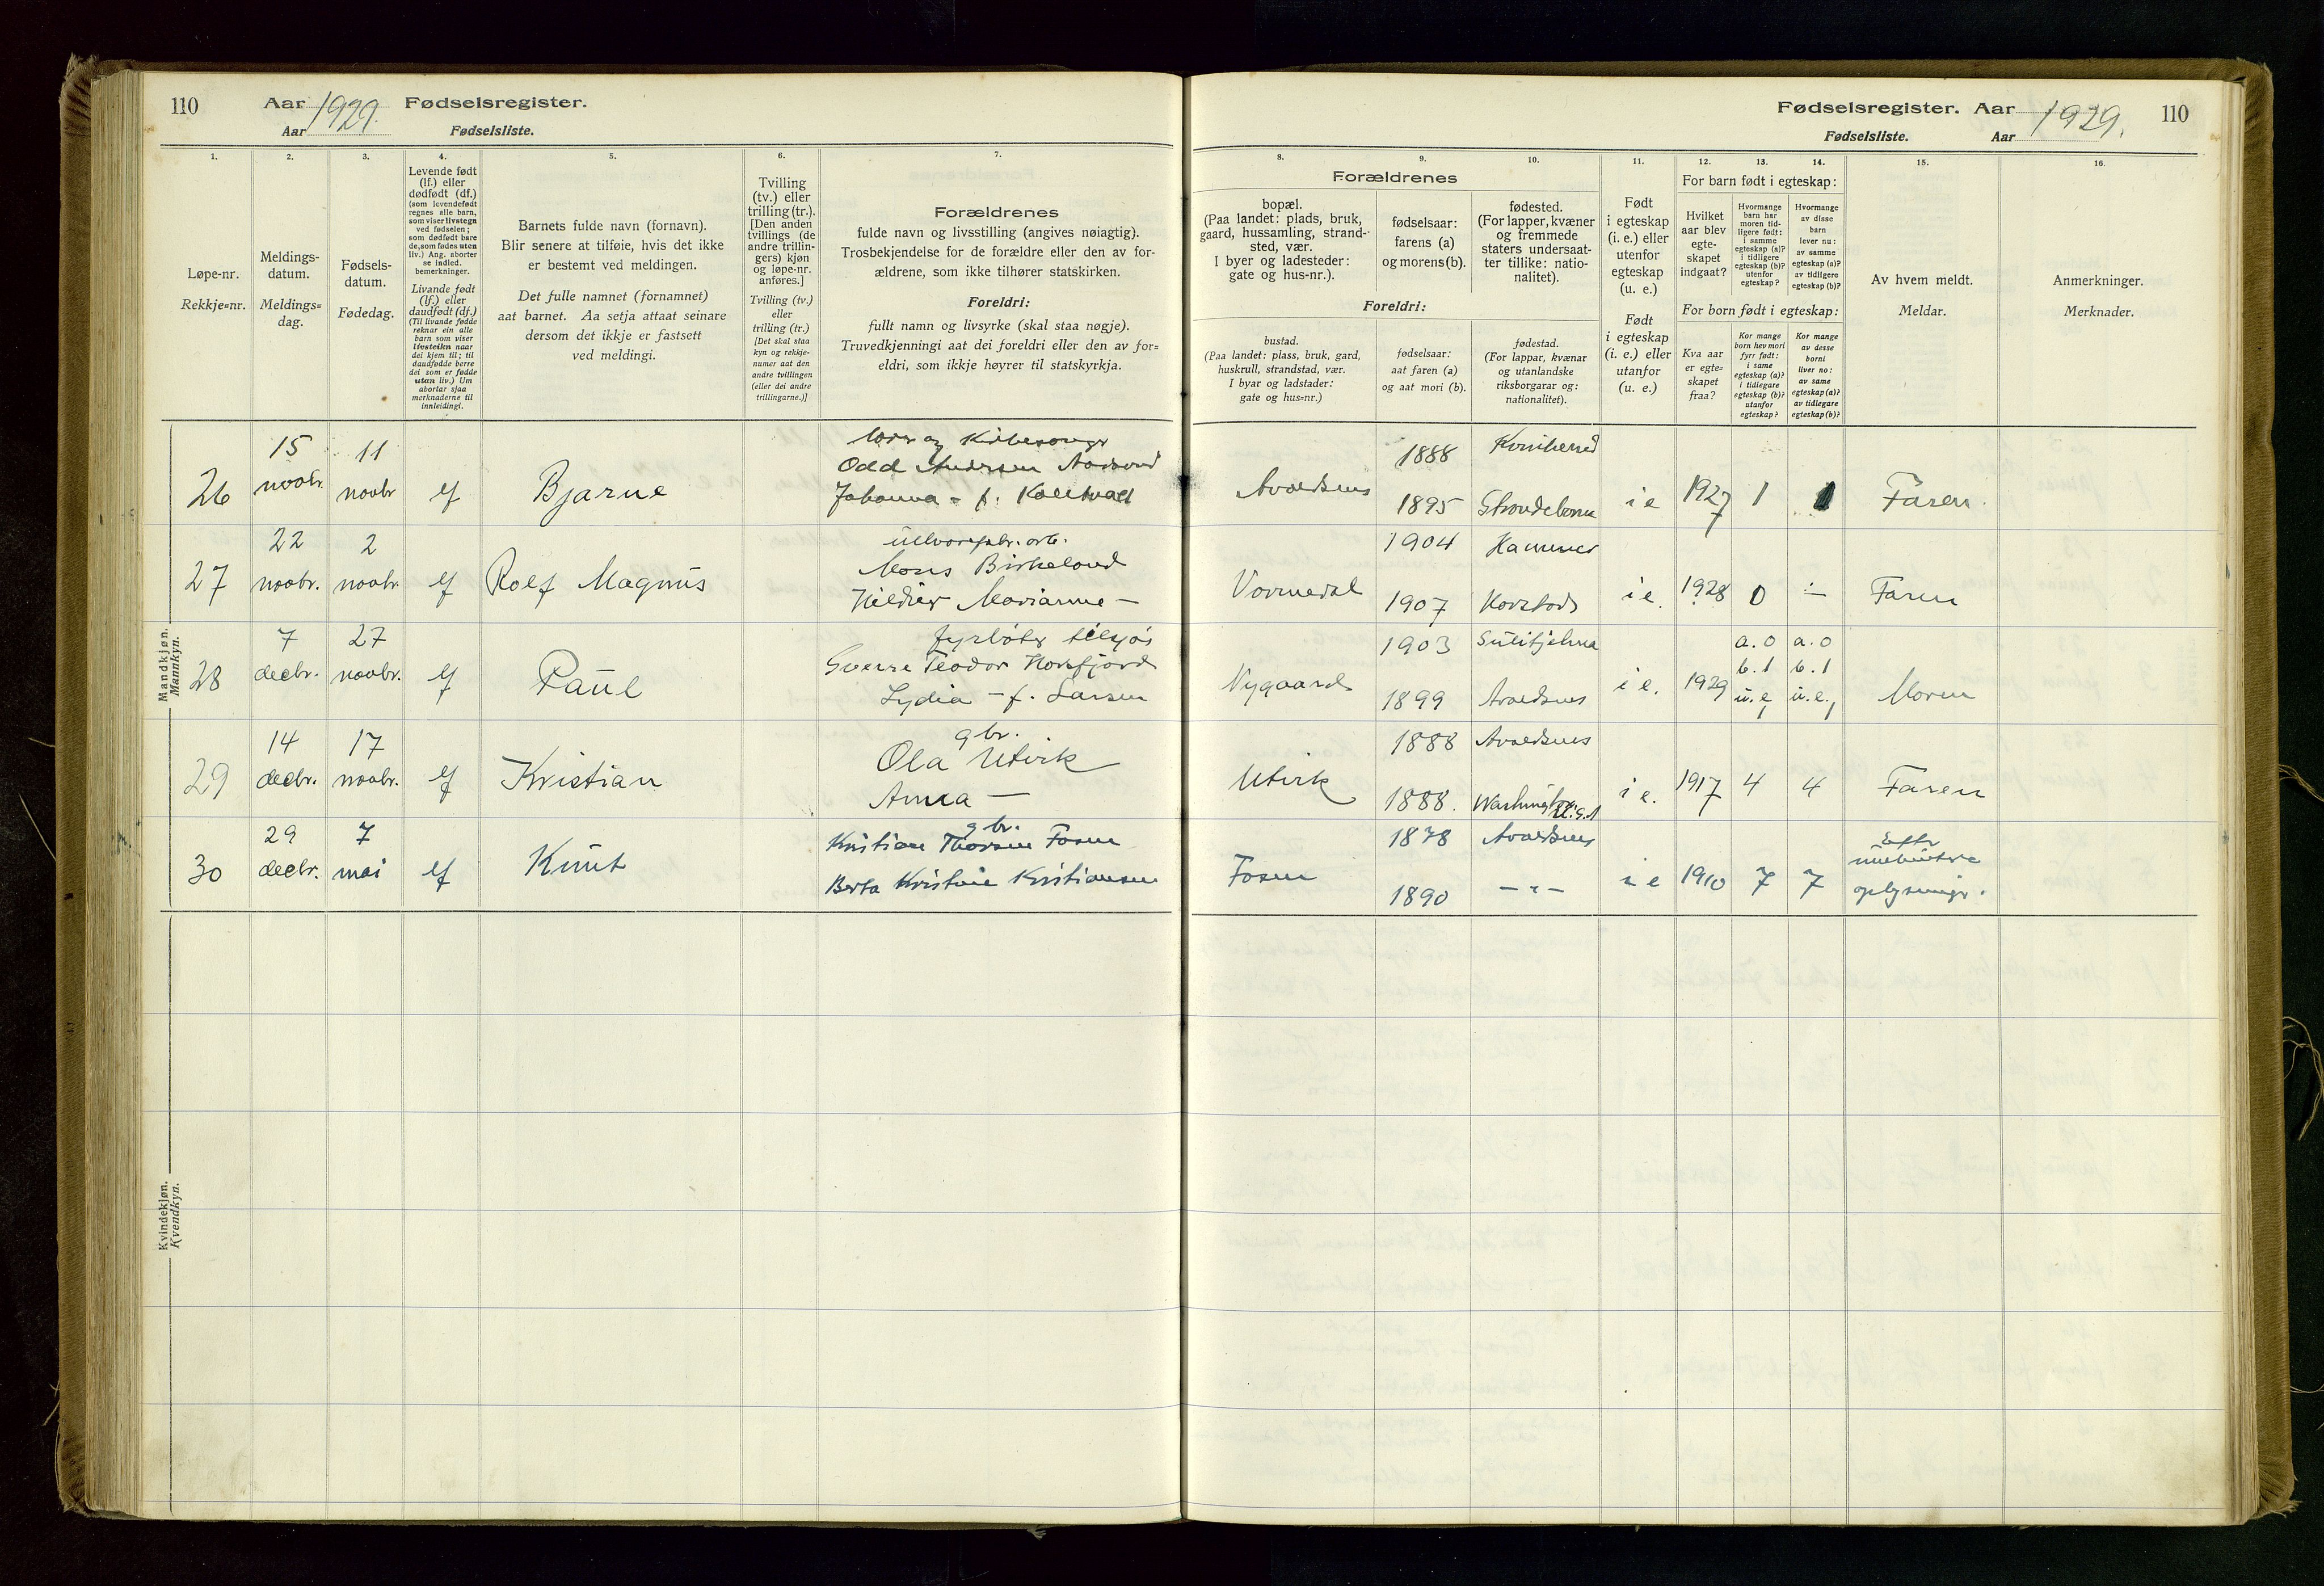 110 Aar 1929. Fødselsregister.
Aar Fødselsliste.
Fødselsregister. Aar 1929. 110
Fødselsliste. Aar
1. 2. 3. 4. 5. 6. 7.
Løpe-nr.
Rekkje=nr.
Meldings-
datum.
Meldings=
dag.
Fødsels-
datum.
Fødedag.
Levende født
(lf.) eller
dødfødt (df.)
(som levendefødt
regnes alle barn,
som viser livstegn
ved fødselen;
som dødfødt bare
de, som fødes uten
liv.) Ang. aborter
se indled.
bemerkninger.
Livande født
(lf.) eller
daudfødt (df.)
(Til livande fødde
reknar ein alle
barn som viser
livsteikn naar
dei kjem til; til
daudfødde berre
dei som er fødde
utan liv.) Um
abortar sjaa
merknaderne til
innleidingi.
Barnets fulde navn (fornavn).
Blir senere at tilføie, hvis det ikke
er bestemt ved meldingen.
Det fulle namnet (fornamnet)
aat barnet. Aa setja attaat seinare
dersom det ikkje er fastsett
ved meldingi.
Tvilling
(tv.) eller
trilling (tr.).
[Den anden
tvillings (de
andre trillin-
gers) kjøn
og løpe-nr.
anføres.]
Tvilling (tv.)
eller
trilling (tr.)
[Det skal staa
kyn og rekkje-
numer aat den
andre tvillingen
(eller dei andre
trillingarne.)]
Forældrenes
fulde navn og livsstilling (angives nøiagtig).
Trosbekjendelse for de forældre eller den av for-
ældrene, som ikke tilhører statskirken.
Foreldri:
fullt namn og livsyrke (skal staa nøgje).
Truvedkjenningi aat dei foreldri eller den av for=
eldri, som ikkje høyrer til statskyrkja.
8. 9. 10. 11. 12. 13. 14. 15. 16.
Forældrenes
bopæl.
(Paa landet: plads, bruk,
gaard, hussamling, strand-
sted, vær.
I byer og ladesteder:
gate og hus-nr.).
fødselsaar:
farens (a)
og morens (b).
fødested.
(For lapper, kvæner
og fremmede
staters undersaat-
ter tillike: natio-
nalitet).
Foreldri:
bustad.
(Paa landet: plass, bruk, gard,
huskrull, strandstad, vær.
I byar og ladstader:
gate og hus=nr.)
fødselsaar:
aat faren (a)
og aat mori (b).
fødestad.
(For lappar, kvænar
og utanlandske
riksborgarar og:
nationalitet).
Født
i egteskap
(i. e.) eller
utenfor
egteskap
(u. e.)
Født
i egteskap
(i. e.) eller
utanfor
(u. e.)
For barn født i egteskap:
Hvilket
aar blev
egte-
skapet
indgaat?
Hvormange
barn har
moren tid-
ligere født:
i samme
egteskap (a)?
i tidligere
egteskap (b)?
utenfor
egteskap?
Hvormange
av disse
barn
lever nu:
av samme
egteskap (a)?
av tidligere
egteskap (b)?
For born født i egteskap:
Kva aar
er egte=
skapet
fraa?
Kor mange
born hev mori
fyrr født:
i same
egteskap (a)?
i tidlegare
egteskap (b)?
utanfor
egteskap?
Kor mange
av desse
borni
liver no:
av same
egteskap (a)?
av tidlegare
egteskap (b)?
Av hvem meldt.
Meldar.
Anmerkninger.
Merknader.
Mandkjøn.
Mannkyn.
26 15 novbr. 11 novbr lf Bjarne
lærer og Kirkesanger
Odd Andersen
Johanna - f.
Avaldsnes 1888
1895 i e 1927 1 1 Faren.
27 22 novbr. 2 novbr. lf Rolf Magnus
Mons Birkeland
Marianne —
Vormedal 1904 Hammer
1907 i e. 1928 0 — Faren
28 7 decbr. 27 novbr. lf Paul
fyrbøter tilsjøs
Sverre Teodor
Lydia — f. Larsen
Nygaard 1903 Sulitjelma
1899 Avaldsnes i e. 1929
a. 0 a. 0
b. 1 b. 1
u. e, u. e.,
Moren
29 14 decbr. 17 novbr. lf Kristian
gbr.
Ola Utvik
Anna —
Utvik 1888 Avaldsnes
1888. Washington U.S.A i e. 1917 4 4 Faren
30 29 decbr. 7 mai lf Knut
gbr.
Kristian Thorsen Fosen
Berta Kristine Kristiansen
Fosen 1878 Avaldsnes
1890 — " — i e 1910 7 7
Efter
opplysninger.
Kvindekjøn.
Kvendkyn.